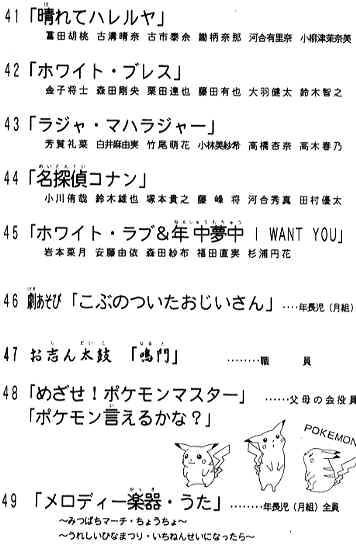 41「晴れてハレルヤ」
冨田胡桃 古溝晴奈 古市泰余 鋤柄奈那 河合有里奈 小栁津茉奈美
42「ホワイト・ブレス」
金子将士 森田剛央 栗田達也 藤田有也 大羽健太 鈴木智之
43「ラジャ・マハラジャー」
芳賀礼菜 白井麻由実 竹尾萌花 小林美紗希 高橋杏奈 高木春乃
めいたんてい
44「名探偵コナン」
小川侑哉 鈴木雄也 塚本貴之 藤峰将 河合秀真 田村優太
ねんじゅうむちゅう
45「ホワイト・ラブ&年中夢中 I WANT YOU」
岩本菜月 安藤由依 森田紗布 福田直実 杉浦円花
げき
46 劇あそび「こぶのついたおじいさん」....年長児(月組)
しんだいこ なると
47 お志ん太鼓「鳴門」........職 員
48「めざせ!ポケモンマスター」......父母の会役員
「ポケモン言えるかな?」
POKEMON
がっき
49「メロディー楽器・うた」........年長児(月組)全員
~みつばちマーチ・ちょうちょ~
~うれしいひなまつり・いちねんせいになったら~